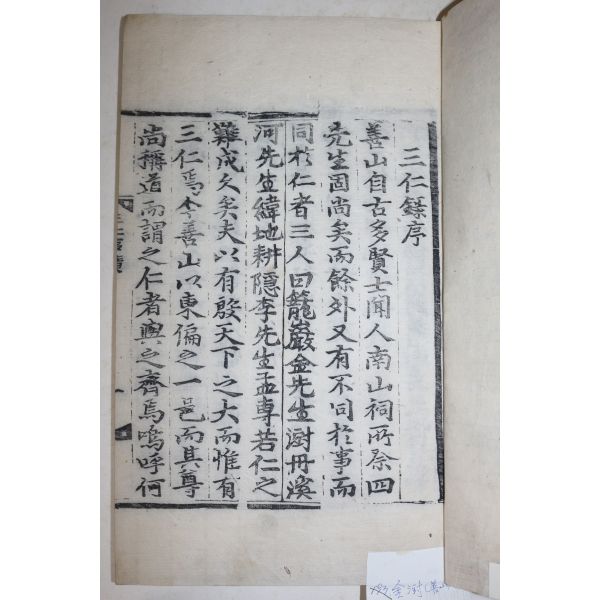 三仁錄序
善山自古多賢士聞人南山祠所祭四
先生固尚矣而餘外又有不同於事而
同於仁者三人曰籠巖金先生澍丹溪
河先生緯地耕隱李先生孟專若仁之
難成久矣夫以有殷天下之大而惟有
三仁焉今善山以東偏之一邑而其尊
尚稱道而謂之仁者與之齊焉嗚呼何